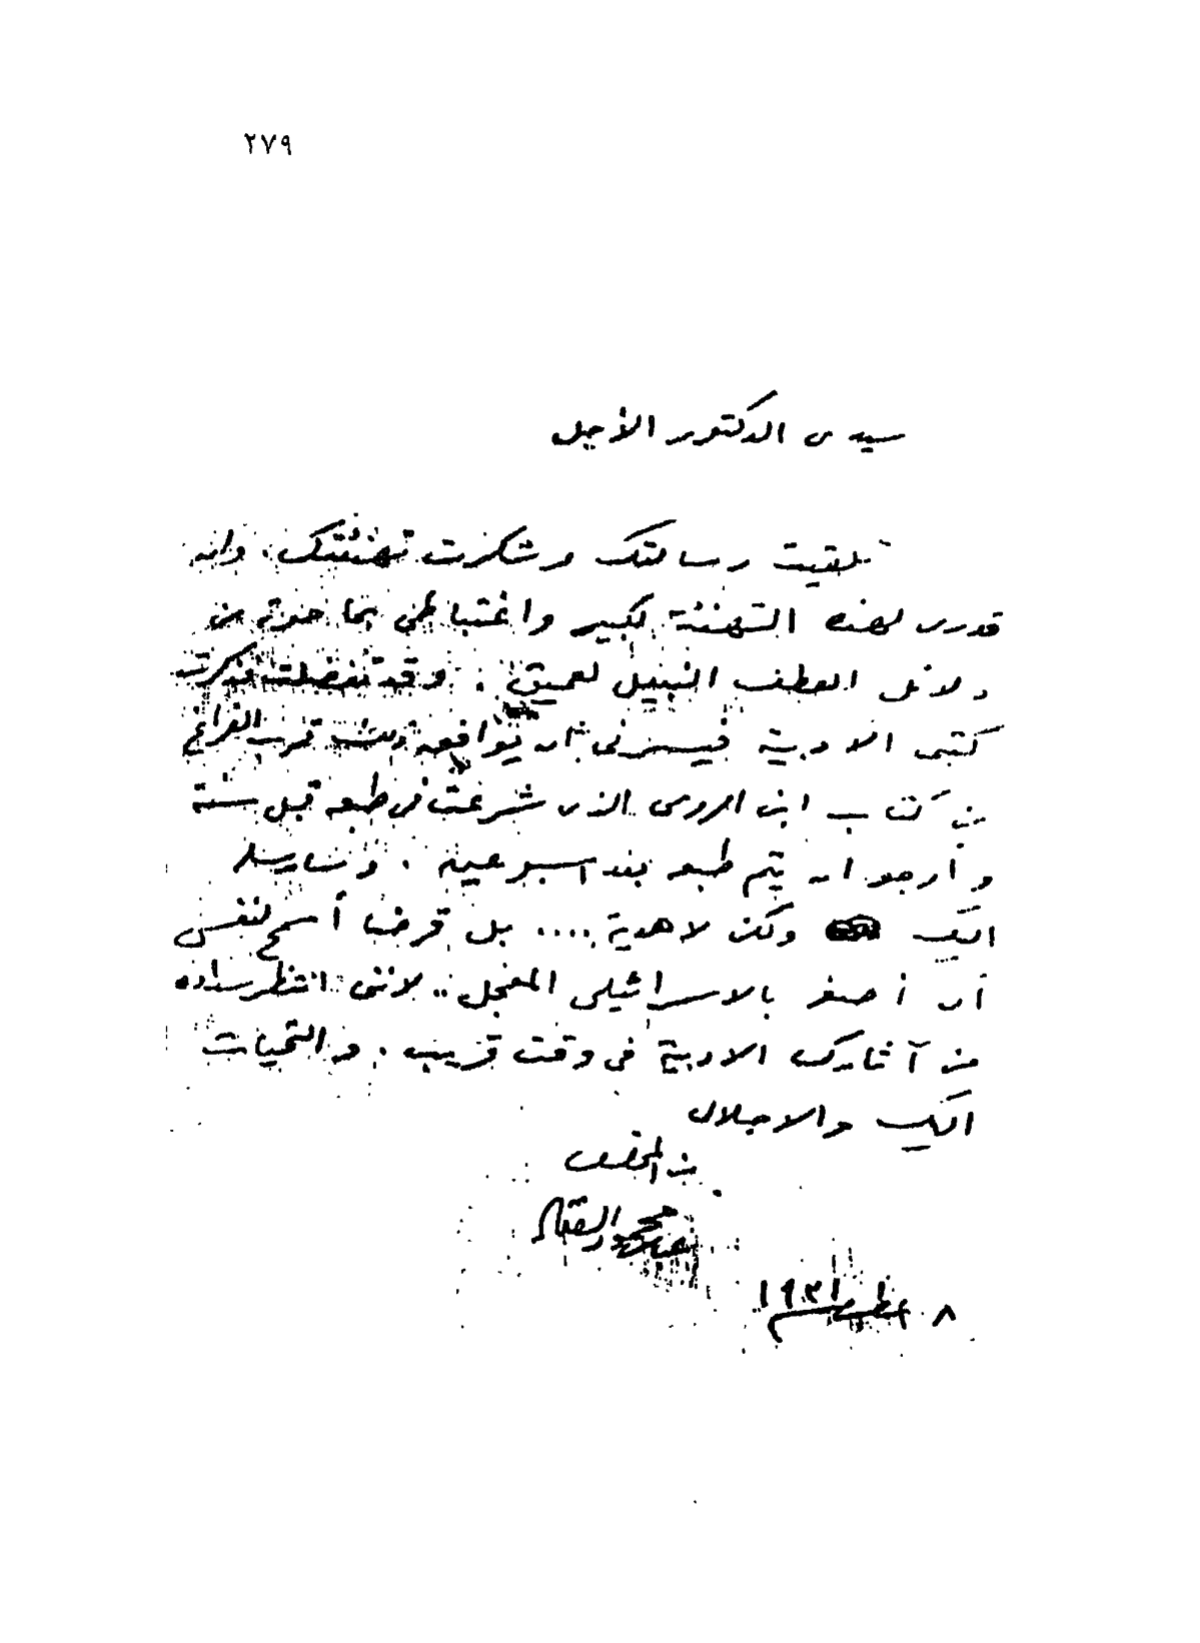 ٢٧٩
سيدى الدكتور الأجل
تلقيت رسالتك وشكرت تهنئتك. وان
قدرى لهذه التهنئة لكبير واغتباطى بما حوته من
دلائل العطف النبيل لعميق. وقد تفضلت فذكرت
كتبى الادبية فيسرنى ان يوافق ذلك قرب الفراغ
من كتاب ابن الرومى الذى شرعت فى طبعه قبل سنة
وأرجو ان يتم طبعه بعد اسبوعين. وسأرسله
اليك ولكن لا هدية .... بل قرضا أسمح لنفسى
أن أصفه بالاسرائيلى المعجل.. لاننى انتظر سداده
من آثارك الادبية فى وقت قريب. والتحيات
اليك والاجلال
من المخلص
عباس محمود العقاد
٨ اغسطس ١٩٣١